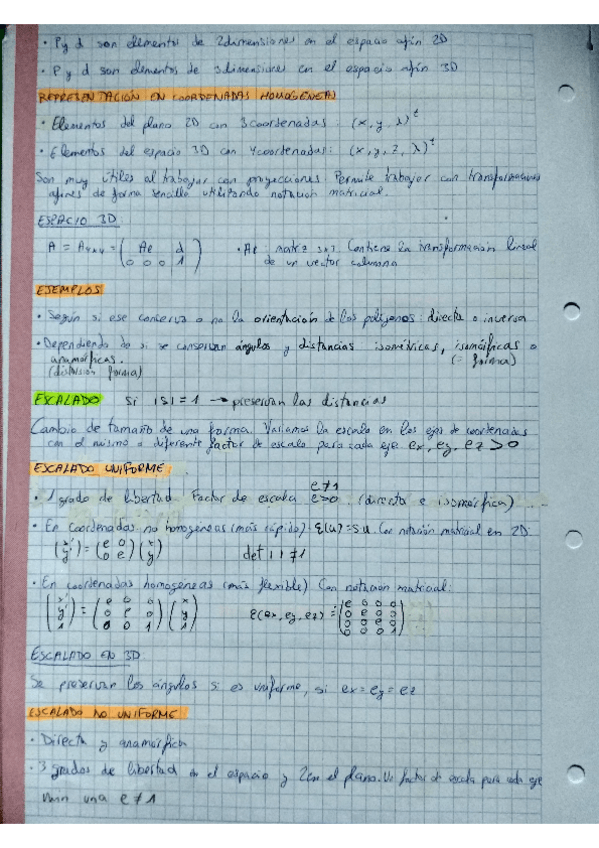 · P y d son elementos de 2 dimensiones en el espacio afín 2D
· P y d son elementos de 3 dimensiones en el espacio afín 3D
REPRESENTACIÓN EN COORDENADAS HOMOGÉNEAS
· Elementos del plano 2D con 3 coordenadas: (x, y, λ)^t
· Elementos del espacio 3D con 4 coordenadas: (x, y, z, λ)^t
Son muy útiles al trabajar con proyecciones. Permite trabajar con transformaciones
afines de forma sencilla utilizando notación matricial.
ESPACIO 3D:
A = A4x4 = ( Ae d / 0 0 0 1 ) · Ae: matriz 3x3. Contiene la transformación lineal
de un vector columna
EJEMPLOS
· Según si ese conserva o no la orientación de los polígonos: directa o inversa
· Dependiendo de si se conservan ángulos y distancias: isométricas, isomórficas o
anamórficas. (= forma)
(distorsión forma)
ESCALADO si |s| = 1 → preservan las distancias
Cambio de tamaño de una forma. Variamos la escala en los ejes de coordenadas
con el mismo o diferente factor de escala para cada eje. ex, ey, ez > 0
ESCALADO UNIFORME:
e≠1
· 1 grado de libertad. Factor de escala e>0 (directa e isomórfica)
· En coordenadas no homogéneas (más rápido): E(u) = s·u. Con notación matricial en 2D:
(x' / y') = (e 0 / 0 e) (x / y) det | | ≠ 1
· En coordenadas homogéneas (más flexible) Con notación matricial:
(x' / y' / 1) = (e 0 0 / 0 e 0 / 0 0 1) (x / y / 1) E(ex, ey, ez) = (e 0 0 0 / 0 e 0 0 / 0 0 e 0 / 0 0 0 1)
ESCALADO EN 3D:
Se preservan los ángulos si es uniforme, si ex = ey = ez
ESCALADO NO UNIFORME:
· Directa y anamórfica
· 3 grados de libertad en el espacio y 2 en el plano. Un factor de escala para cada eje
min una e ≠ 1